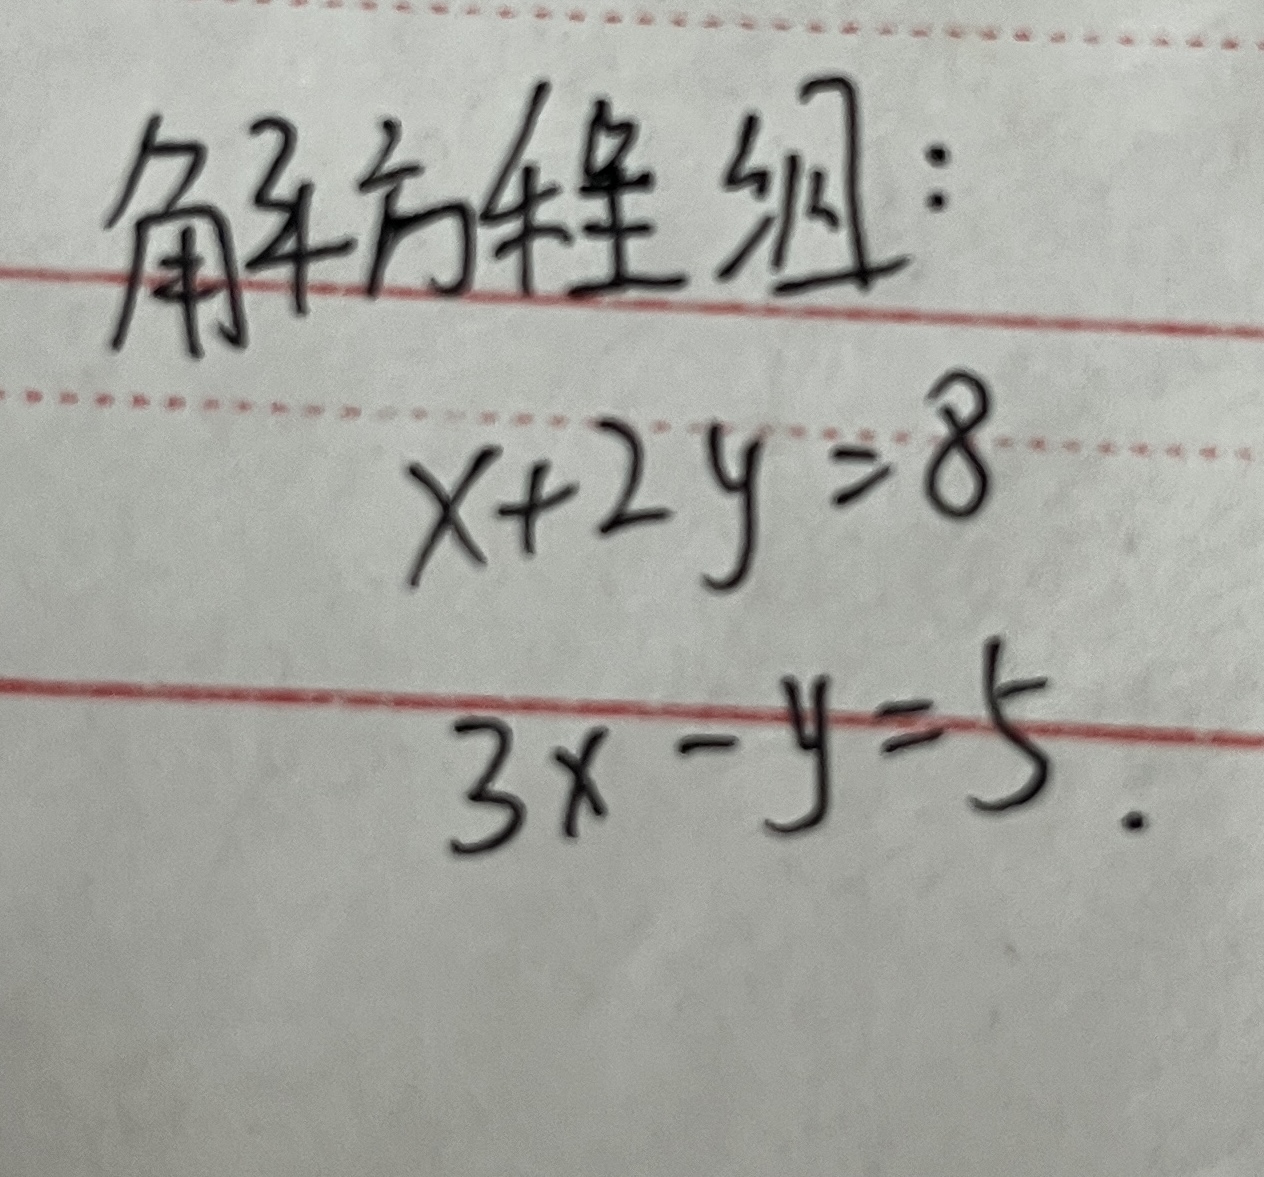 解方程组:
x+2y=8
3x-y=5.